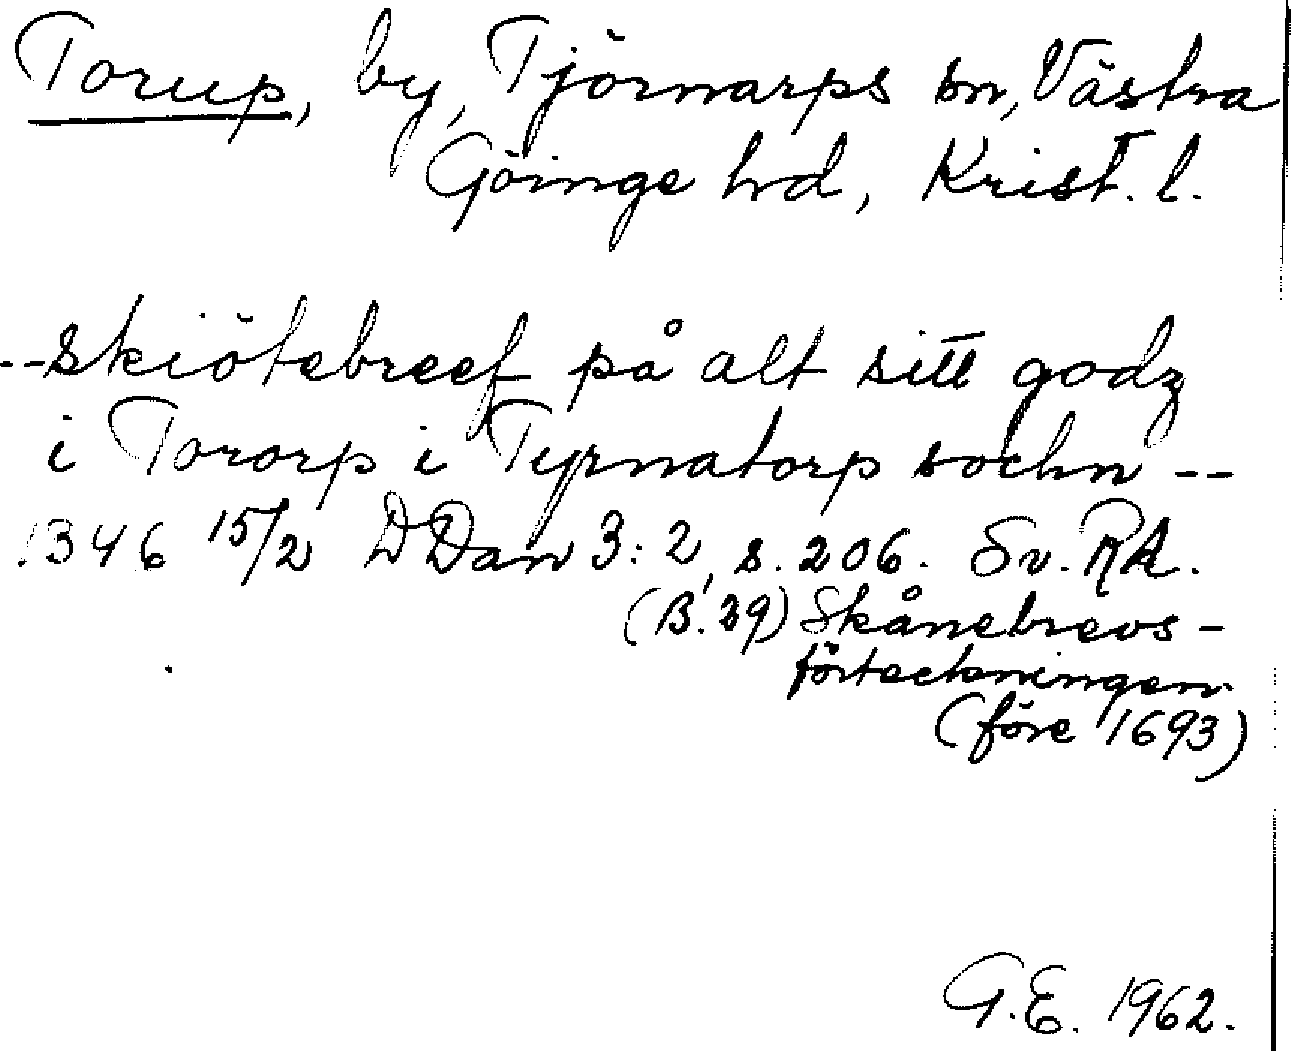 Torup, by, Tjörnarps sn, Västra
Göinge hd, Krist. l.
--skiötebreef på alt sitt godz
i Tororp i Tyrnatorp sochn --
1346 15/2 DDan 3:2, s. 206. Sv. RA.
(B. 29) Skånebrevs-
förteckningen
(före 1693)
G.E. 1962.